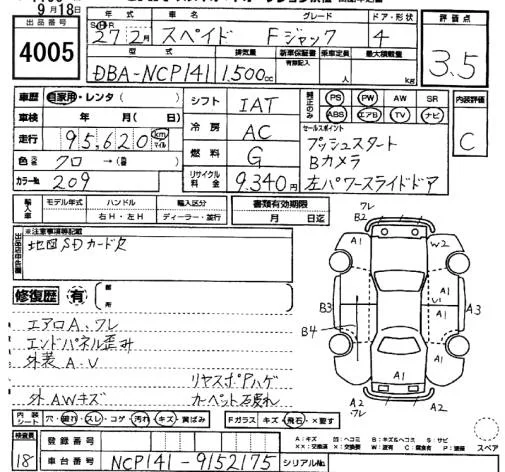 9月18日
出品番号
4005
年式 車名 グレード ドア・形状
27.2月 スペイド Fジャック 4
型式 排気量 新車保証書 乗車定員 最大積載量
有 記入 人 kg
DBA-NCP141 1,500cc
評価点
3.5
車歴 自家用・レンタ( )
車検 年 月( 日)
走行 95,620 km マイル
色 クロ →( )
カラーNo. 209
シフト IAT
冷房 AC
燃料 G
リサイクル料金 9,340円
純正のみ PS PW AW SR
ABS エアB TV ナビ
セールスポイント
プッシュスタート
Bカメラ
左パワースライドドア
内装評価
C
輸入車 モデル年式 ハンドル 輸入区分
右H・左H ディーラー・並行
書類有効期限
月 日迄
出品店申告欄 ※注意事項等記載
地図SDカード欠
修復歴 有 箇所
エアロA、ワレ
エンドパネル歪み
外装A・U
リヤスポPハゲ
外AWキズ カーペット汚れ
ワレ
B2
A1 W2
A1 U1
B3 A3
B4
A1
A1 A1
A2 A2
ワレ
スペア
内装シート 穴・破れ・スレ・コゲ・汚れ・キズ・黄ばみ
Fガラス キズ・飛石・×要す
A：キズ 凹：ヘコミ B：キズ&ヘコミ S：サビ
××：交換済 ×：交換要 W：波有 C：腐食有 P：塗装
検査員 18
登録番号
車台番号 NCP141-9152175 シリアルNo.